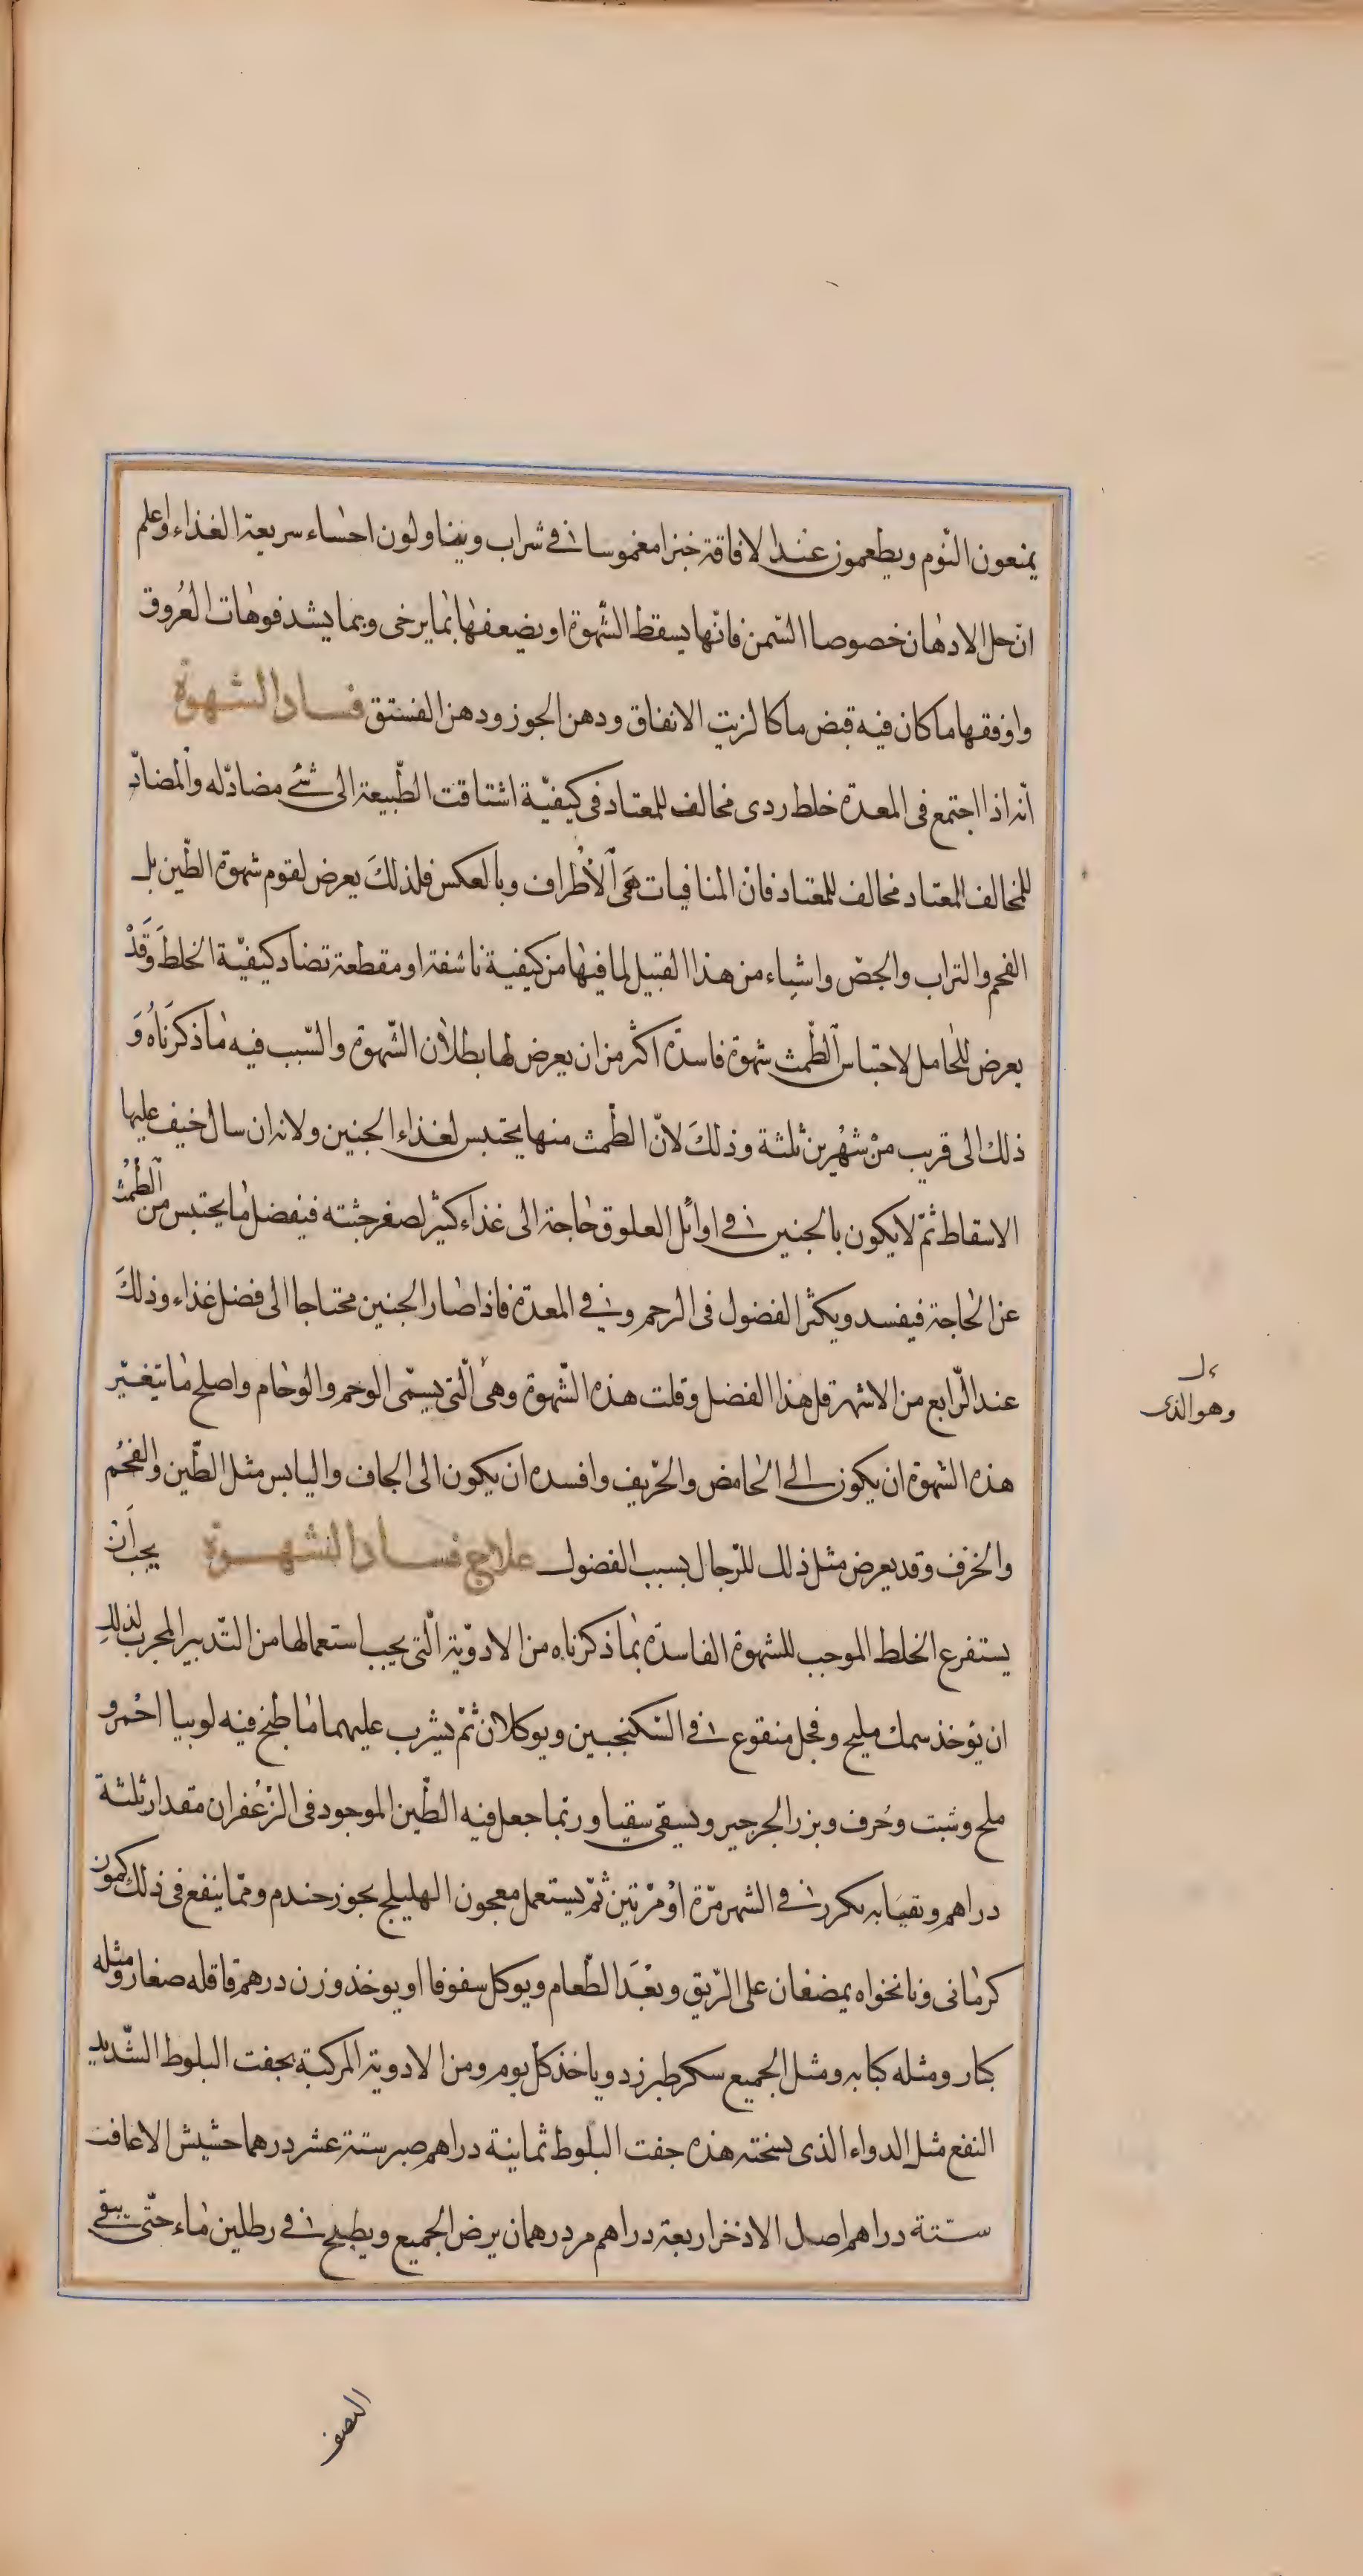 يمنعون النّوم ويطعمون عند الافاقة خبزا مغموسا فى شراب ويتناولون احساء سريعة الغذاء واعلم
ان جل الادهان خصوصا السّمن فانّها يسقط الشّهوة او يضعفها بما يرخى وبما يشد فوهات العُروق
واوفقها ما كان فيه قبض ما كالزيت الانفاق ودهن الجوز ودهن الفستق فساد الشهوة
انّه اذا اجتمع فى المعدة خلط ردى مخالف للمعتاد فى كيفيّة اشتاقت الطّبيعة الى شئ مضادّ له والمضادّ
للمخالف المعتاد مخالف للمعتاد فان المنافيات هَى الأطراف وبالعكس فلذلكَ يعرض لقوم شهوة الطّين بل
الفحم والتراب والجصّ واشياء من هذا القبيل لما فيها من كيفية ناشفة او مقطعة تضاد كيفيّة الخلط وَقَدْ
يعرض للحامل لاحتباس الطّمث شهوة فاسدة اكثر من ان يعرض لها بطلان الشّهوة والسّبب فيه ما ذكرَناهُ وَ
ذلك الى قريب منْ شهْرين ثلثة وذلكَ لانّ الطّمث منها يحتبس لغذاء الجنين ولانه ان سال خيف عليها
الاسقاط ثمّ لا يكون بالجنين فى اوائل العلوق حاجة الى غذاء كثير لصغر جثته فيفضل ما يحتبس من الطّمُث
عن الحاجة فيفسد ويكثر الفضول فى الرحم وفى المعدة فاذا صار الجنين محتاجا الى فضل غذاء وذلكَ
عند الرّابع من الاشهر قل هذا الفضل وقلت هذه الشّهوة وهى الّتى يسمّى الوحم والوحام واصلح ما يتغيّر
وهو الذى
هذه الشهوة ان يكون الى الحامض والحرّيف وافسده ان يكون الى الجاف واليابس مثل الطّين والفحُم
والخزف وقد يعرض مثل ذلك للرّجال بسبب الفضول علاج فساد الشهوة يجب اَن
يستفرع الخلط الموجب للشهوة الفاسدة بما ذكرناه من الادوّية الّتى يجب استعمالها من التّدبير المجرب لذلك
ان يؤخذ سمك مليح وفجل منقوع فى السّكنجبين ويوكلان ثمّ يشرب عليهما ما طبخ فيه لوبيا احْمر و
ملح وشبت وحُرف وبزر الجرجير ويسقى سقيا وربّما جعل فيه الطّين الموجود فى الزّعْفران مقدار ثلثة
دراهم وتقيَا به يكرر فى الشهر مرّة اوْ مرْتين ثمّ يستعمل معجون الهليلج بجوز جندم وممّا ينفع فى ذلك كمون
كرمانى ونانخواه يمضغان على الرّيق وبعْدَ الطّعام ويوكل سفوفا او يوخذ وزن درهم قاقله صغار ومثله
كبار ومثله كبابه ومثل الجميع سكر طبرزد وياخذ كلّ يوم ومن الادوية المركبة بجفت البلوط الشّديد
النفع مثل الدواء الذى نسخته هذه جفت البلّوط ثمانية دراهم صبر ستة عشر درهما حشيش الاغافت
ستّة دراهم اصل الاذخر اربعة دراهم مر درهمان يرض الجميع ويطبخ فى رطلين ماء حتّى يبقى
النصف